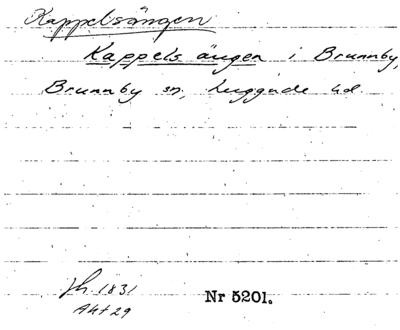 Kappelsängen
Kappels ängen i Brunnby,
Brunnby sn, Luggude hd.
Jh. 1831
Akt 29
Nr 5201.